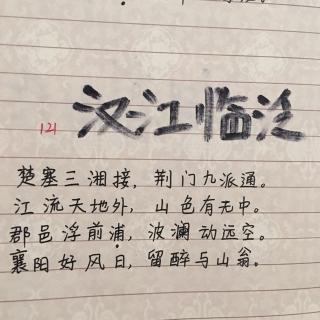 121
汉江临泛
楚塞三湘接，荆门九派通。
江流天地外，山色有无中。
郡邑浮前浦，波澜动远空。
襄阳好风日，留醉与山翁。